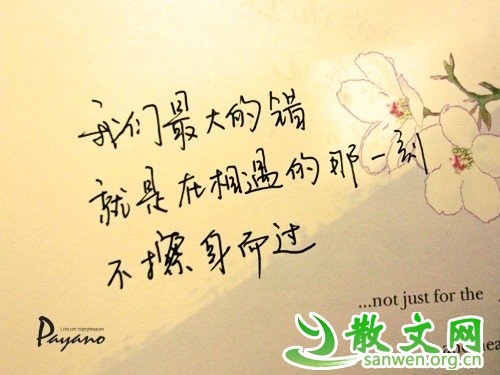 我们最大的错
就是在相遇的那一刻
不擦身而过
...not just for the
Payano
散文网
sanwen.org.cn